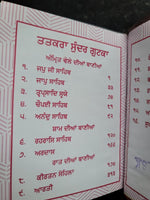 ਤਤਕਰਾ ਸੁੰਦਰ ਗੁਟਕਾ
ਅੰਮ੍ਰਿਤ ਵੇਲੇ ਦੀਆਂ ਬਾਣੀਆਂ
੧. ਜਪੁ ਜੀ ਸਾਹਿਬ
੨. ਜਾਪੁ ਸਾਹਿਬ
੩. ਤ੍ਵਪ੍ਰਸਾਦਿ ਸ੍ਵੈਯੇ
੪. ਚੌਪਈ ਸਾਹਿਬ
੫. ਅਨੰਦੁ ਸਾਹਿਬ
ਸ਼ਾਮ ਦੀਆਂ ਬਾਣੀਆਂ
੬. ਰਹਰਾਸਿ ਸਾਹਿਬ
੭. ਅਰਦਾਸ
ਰਾਤ ਦੀਆਂ ਬਾਣੀਆਂ
੮. ਕੀਰਤਨ ਸੋਹਿਲਾ
੯. ਆਰਤੀ